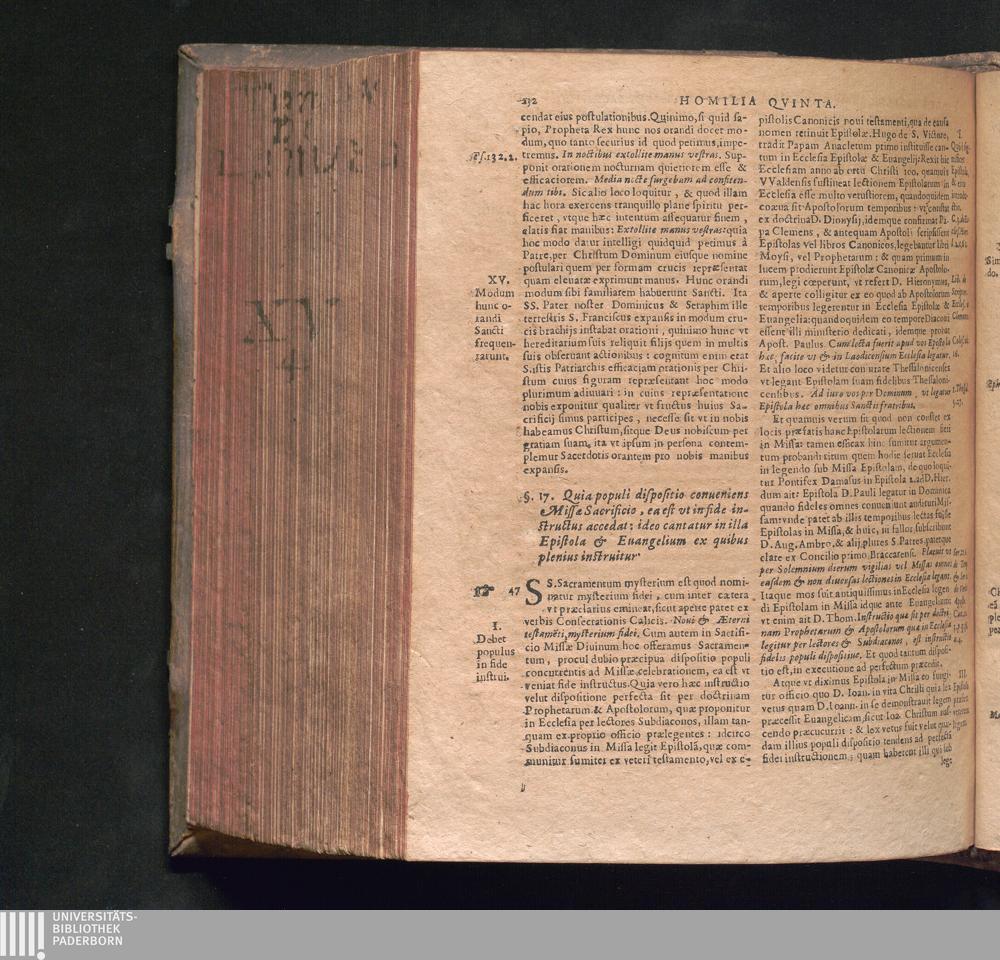 232 HOMILIA QVINTA.
cendat eius postulationibus. Quinimo, si quid sa-
pio, Propheta Rex hunc nos orandi docet mo-
dum, quo tanto securius id quod petimus, impe-
tremus. In noctibus extollite manus vestras. Sup-
ponit orationem nocturnam quietiorem esse &
efficaciorem. Media nocte surgebam ad confiten-
dum tibi. Sic alio loco loquitur, & quod illam
hac hora exercens tranquillo plane spiritu per-
ficeret, vtque hæc intentum assequatur finem,
elatis fiat manibus: Extollite manus vestras: quia
hoc modo datur intelligi quidquid petimus à
Patre, per Christum Dominum eiusque nomine
postulari quem per formam crucis repræsentat
quam eleuatæ exprimunt manus. Hunc orandi
modum sibi familiarem habuerunt Sancti. Ita
SS. Pater noster Dominicus & Seraphim ille
terrestris S. Franciscus expansis in modum cru-
cis brachijs instabat orationi, quinimo hunc vt
hereditarium suis reliquit filijs quem in multis
suis obseruant actionibus: cognitum enim erat
S. istis Patriarchis efficaciam orationis per Chri-
stum cuius figuram repræsentant hoc modo
plurimum adiuuari: in cuius repræsentatione
nobis exponitur qualiter vt fructus huius Sa-
crificij simus participes, necesse sit vt in nobis
habeamus Christum, sitque Deus nobiscum per
gratiam suam, ita vt ipsum in persona contem-
plemur Sacerdotis orantem pro nobis manibus
expansis.
Ps. 132. 2.
XV.
Modum
hunc o-
randi
Sancti
frequen-
tarunt.
§. 17. Quia populi dispositio conueniens
Missæ Sacrificio, ea est vt in fide in-
structus accedat: ideo cantatur in illa
Epistola & Euangelium ex quibus
plenius instruitur
47 SS. Sacramentum mysterium est quod nomi-
natur mysterium fidei, cum inter cætera
vt præclarius emineat, sicut aperte patet ex
verbis Consecrationis Calicis. Noui & Æterni
testamēti, mysterium fidei. Cum autem in Sacrifi-
cio Missæ Diuinum hoc offeramus Sacramen-
tum, procul dubio præcipua dispositio populi
concurrentis ad Missæ celebrationem, ea est vt
veniat fide instructus. Quia vero hæc instructio
velut dispositione perfecta sit per doctrinam
Prophetarum & Apostolorum, quæ proponitur
in Ecclesia per lectores Subdiaconos, illam tan-
quam ex proprio officio prælegentes: idcirco
Subdiaconus in Missa legit Epistolā, quæ com-
muniter sumitur ex veteri testamento, vel ex e-
I.
Debet
populus
in fide
instrui.
pistolis Canonicis noui testamenti, qua de causa
nomen retinuit Epistolæ. Hugo de S. Victore,
tradit Papam Anacletum primo instituisse can-
tum in Ecclesia Epistolæ & Euangelij: Rexit hic
Ecclesiam anno ab ortu Christi 100, quamuis
VValdensis sustineat lectionem Epistolarum in
Ecclesia esse multo vetustiorem, quandoquidem
coæua sit Apostolorum temporibus: vt constat
ex doctrina D. Dionysij, idemque confirmat Pa-
pa Clemens, & antequam Apostoli scripsissent
Epistolas vel libros Canonicos, legebantur libri
Moysi, vel Prophetarum: & quam primum in
lucem prodierunt Epistolæ Canonicæ Apostolo-
rum, legi cœperunt, vt refert D. Hieronymus,
& aperte colligitur ex eo quod ab Apostolorum
temporibus legerentur in Ecclesia Epistolæ &
Euangelia: quandoquidem eo tempore Diaconi
essent illi ministerio dedicati, idemque probat
Apost. Paulus. Cum lecta fuerit apud vos Epistola
hæc, facite vt & in Laodicensium Ecclesia legatur.
Et alio loco videtur coniurate Thessalonicenses
vt legant Epistolam suam fidelibus Thessaloni-
censibus. Ad iuro vos per Dominum, vt legatur
Epistola hæc omnibus Sanctis fratribus.
Et quamuis verum sit quod non constet ex
locis præfatis hanc Epistolarum lectionem fieri
in Missa: tamen efficax hinc sumitur argumen-
tum probandi ritum quem hodie seruat Ecclesia
in legendo sub Missa Epistolam, de quo loqui-
tur Pontifex Damasus in Epistola 1. ad D. Hier.
dum ait: Epistola D. Pauli legatur in Dominica
quando fideles omnes conueniunt audituri Mis-
sam: vnde patet ab illis temporibus lectas fuisse
Epistolas in Missa, & huic, ni fallor, subscribunt
D. Aug. Ambro. & alij plures S. Patres, patetque
clare ex Concilio primo Braccarensi. Placuit vt
per Solemnium dierum vigilias vel Missas omnes
easdem & non diuersas lectiones in Ecclesia legant.
Itaque mos fuit antiquissimus in Ecclesia legen-
di Epistolam in Missa idque ante Euangelium
vt enim ait D. Thom. Instructio quæ fit per doctri-
nam Prophetarum & Apostolorum quæ in Ecclesia
legitur per lectores & Subdiaconos, est instructio
fidelis populi dispositiue. Et quod tantum disposi-
tio est, in executione ad perfectum præcedit.
Atque vt diximus Epistola in Missa eo fungi-
tur officio quo D. Ioan. in vita Christi quia lex
vetus quam D. Ioann. in se demonstrauit legem
præcessit Euangelicam, sicut Ioa. Christum nas-
cendo præcucurrit: & lex vetus fuit velut quæ-
dam illius populi dispositio tendens ad perfectā
fidei instructionem; quam haberent illi qui sub
lege
UNIVERSITÄTS-
BIBLIOTHEK
PADERBORN